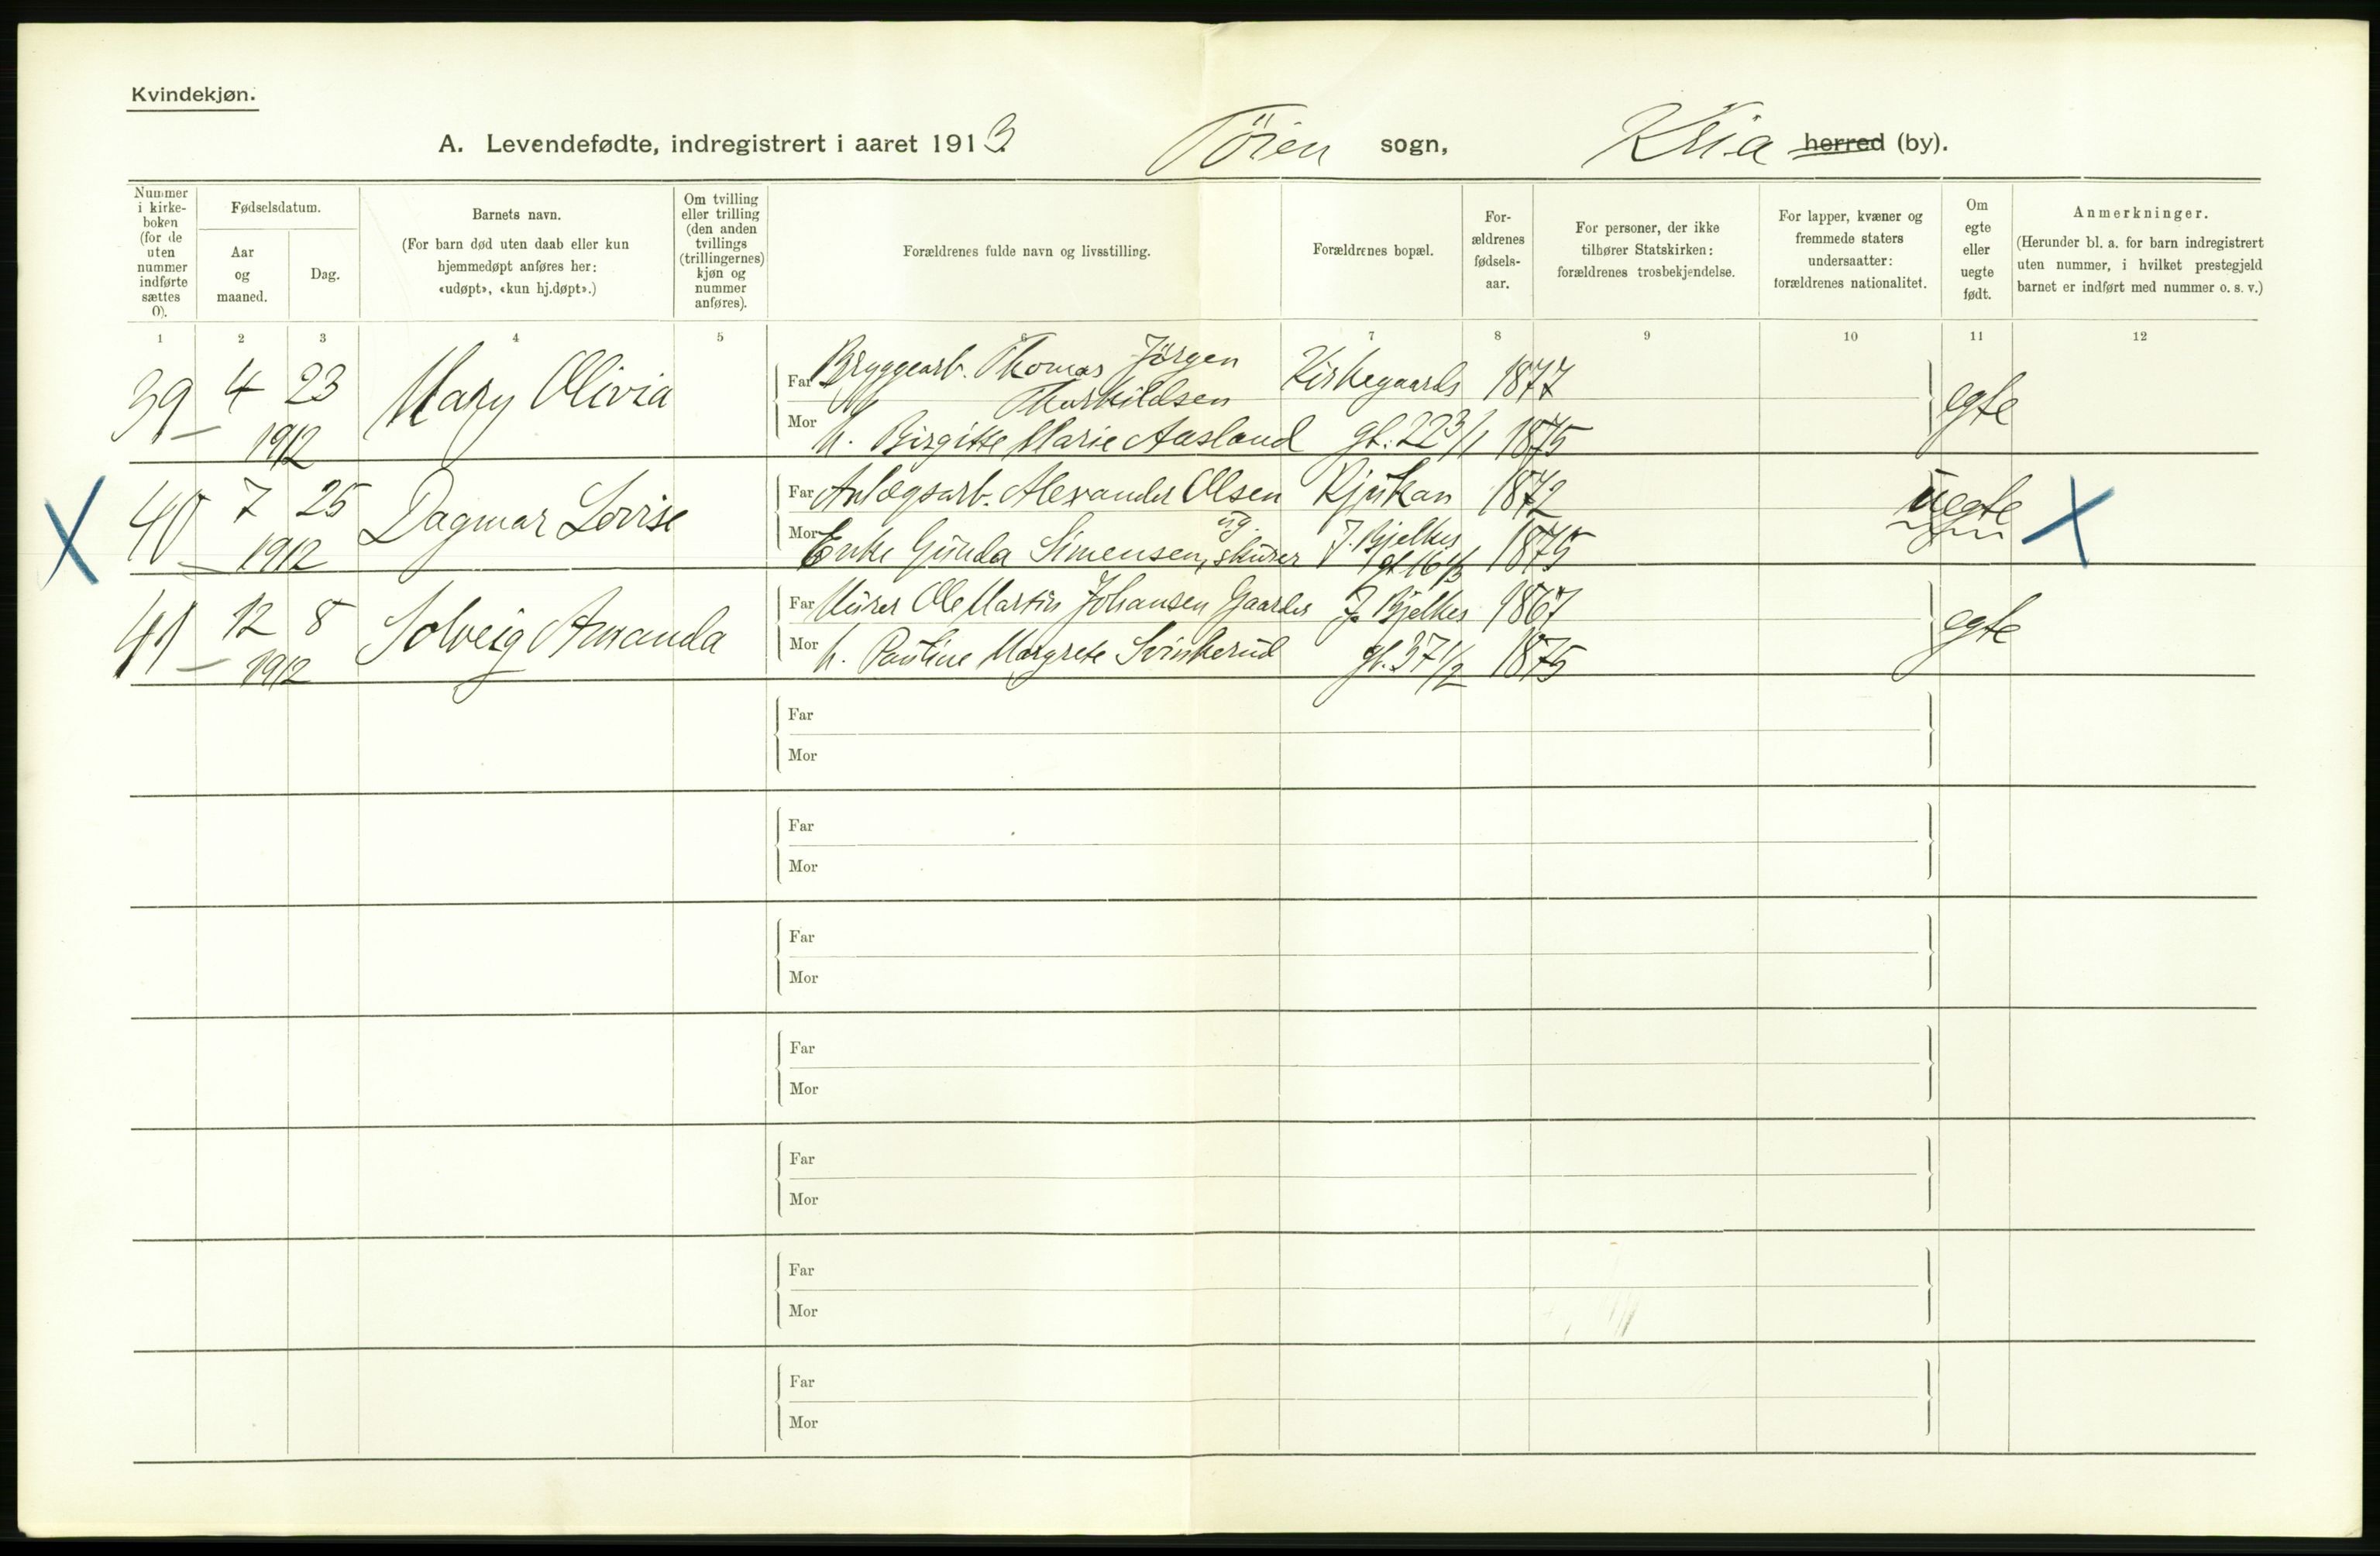 Kvindekjøn.
A. Levendefødte, indregistrert i aaret 1913. Töien sogn, Kria herred (by).
Nummer i kirkeboken (for de uten nummer indførte sættes 0).
Fødselsdatum.
Aar og maaned.
Dag.
Barnets navn.
(For barn død uten daab eller kun hjemmedøpt anføres her: «udøpt», «kun hj.døpt».)
Om tvilling eller trilling (den anden tvillings (trillingernes) kjøn og nummer anføres).
Forældrenes fulde navn og livsstilling.
Forældrenes bopæl.
For-ældrenes fødsels-aar.
For personer, der ikke tilhører Statskirken: forældrenes trosbekjendelse.
For lapper, kvæner og fremmede staters undersaatter: forældrenes nationalitet.
Om egte eller uegte født.
Anmerkninger.
(Herunder bl. a. for barn indregistrert uten nummer, i hvilket prestegjeld barnet er indført med nummer o. s. v.)
1 2 3 4 5 6 7 8 9 10 11 12
39 4 23 Mary Olivia Far Bryggearb. Thomas Jörgen Kirkegaards 1877 egte
Thorkildsen
1912 Mor h. Birgitte Marie Aasland gt. 22 3/1 1875
X 40 7 25 Dagmar Lovise Far Anlægsarb. Alexander Olsen Rjukan 1872 uegte X
1912 Mor Enke Gunda Simensen, skurer J. Bjelkes gt 16 1/3 1875
41 12 8 Solveig Amanda Far Murer Ole Martin Johansen Gaarder J. Bjelkes 1867 egte
1912 Mor h. Pauline Margrete Svinkerud gt. 37 1/2 1875
Far
Mor
Far
Mor
Far
Mor
Far
Mor
Far
Mor
Far
Mor
Far
Mor